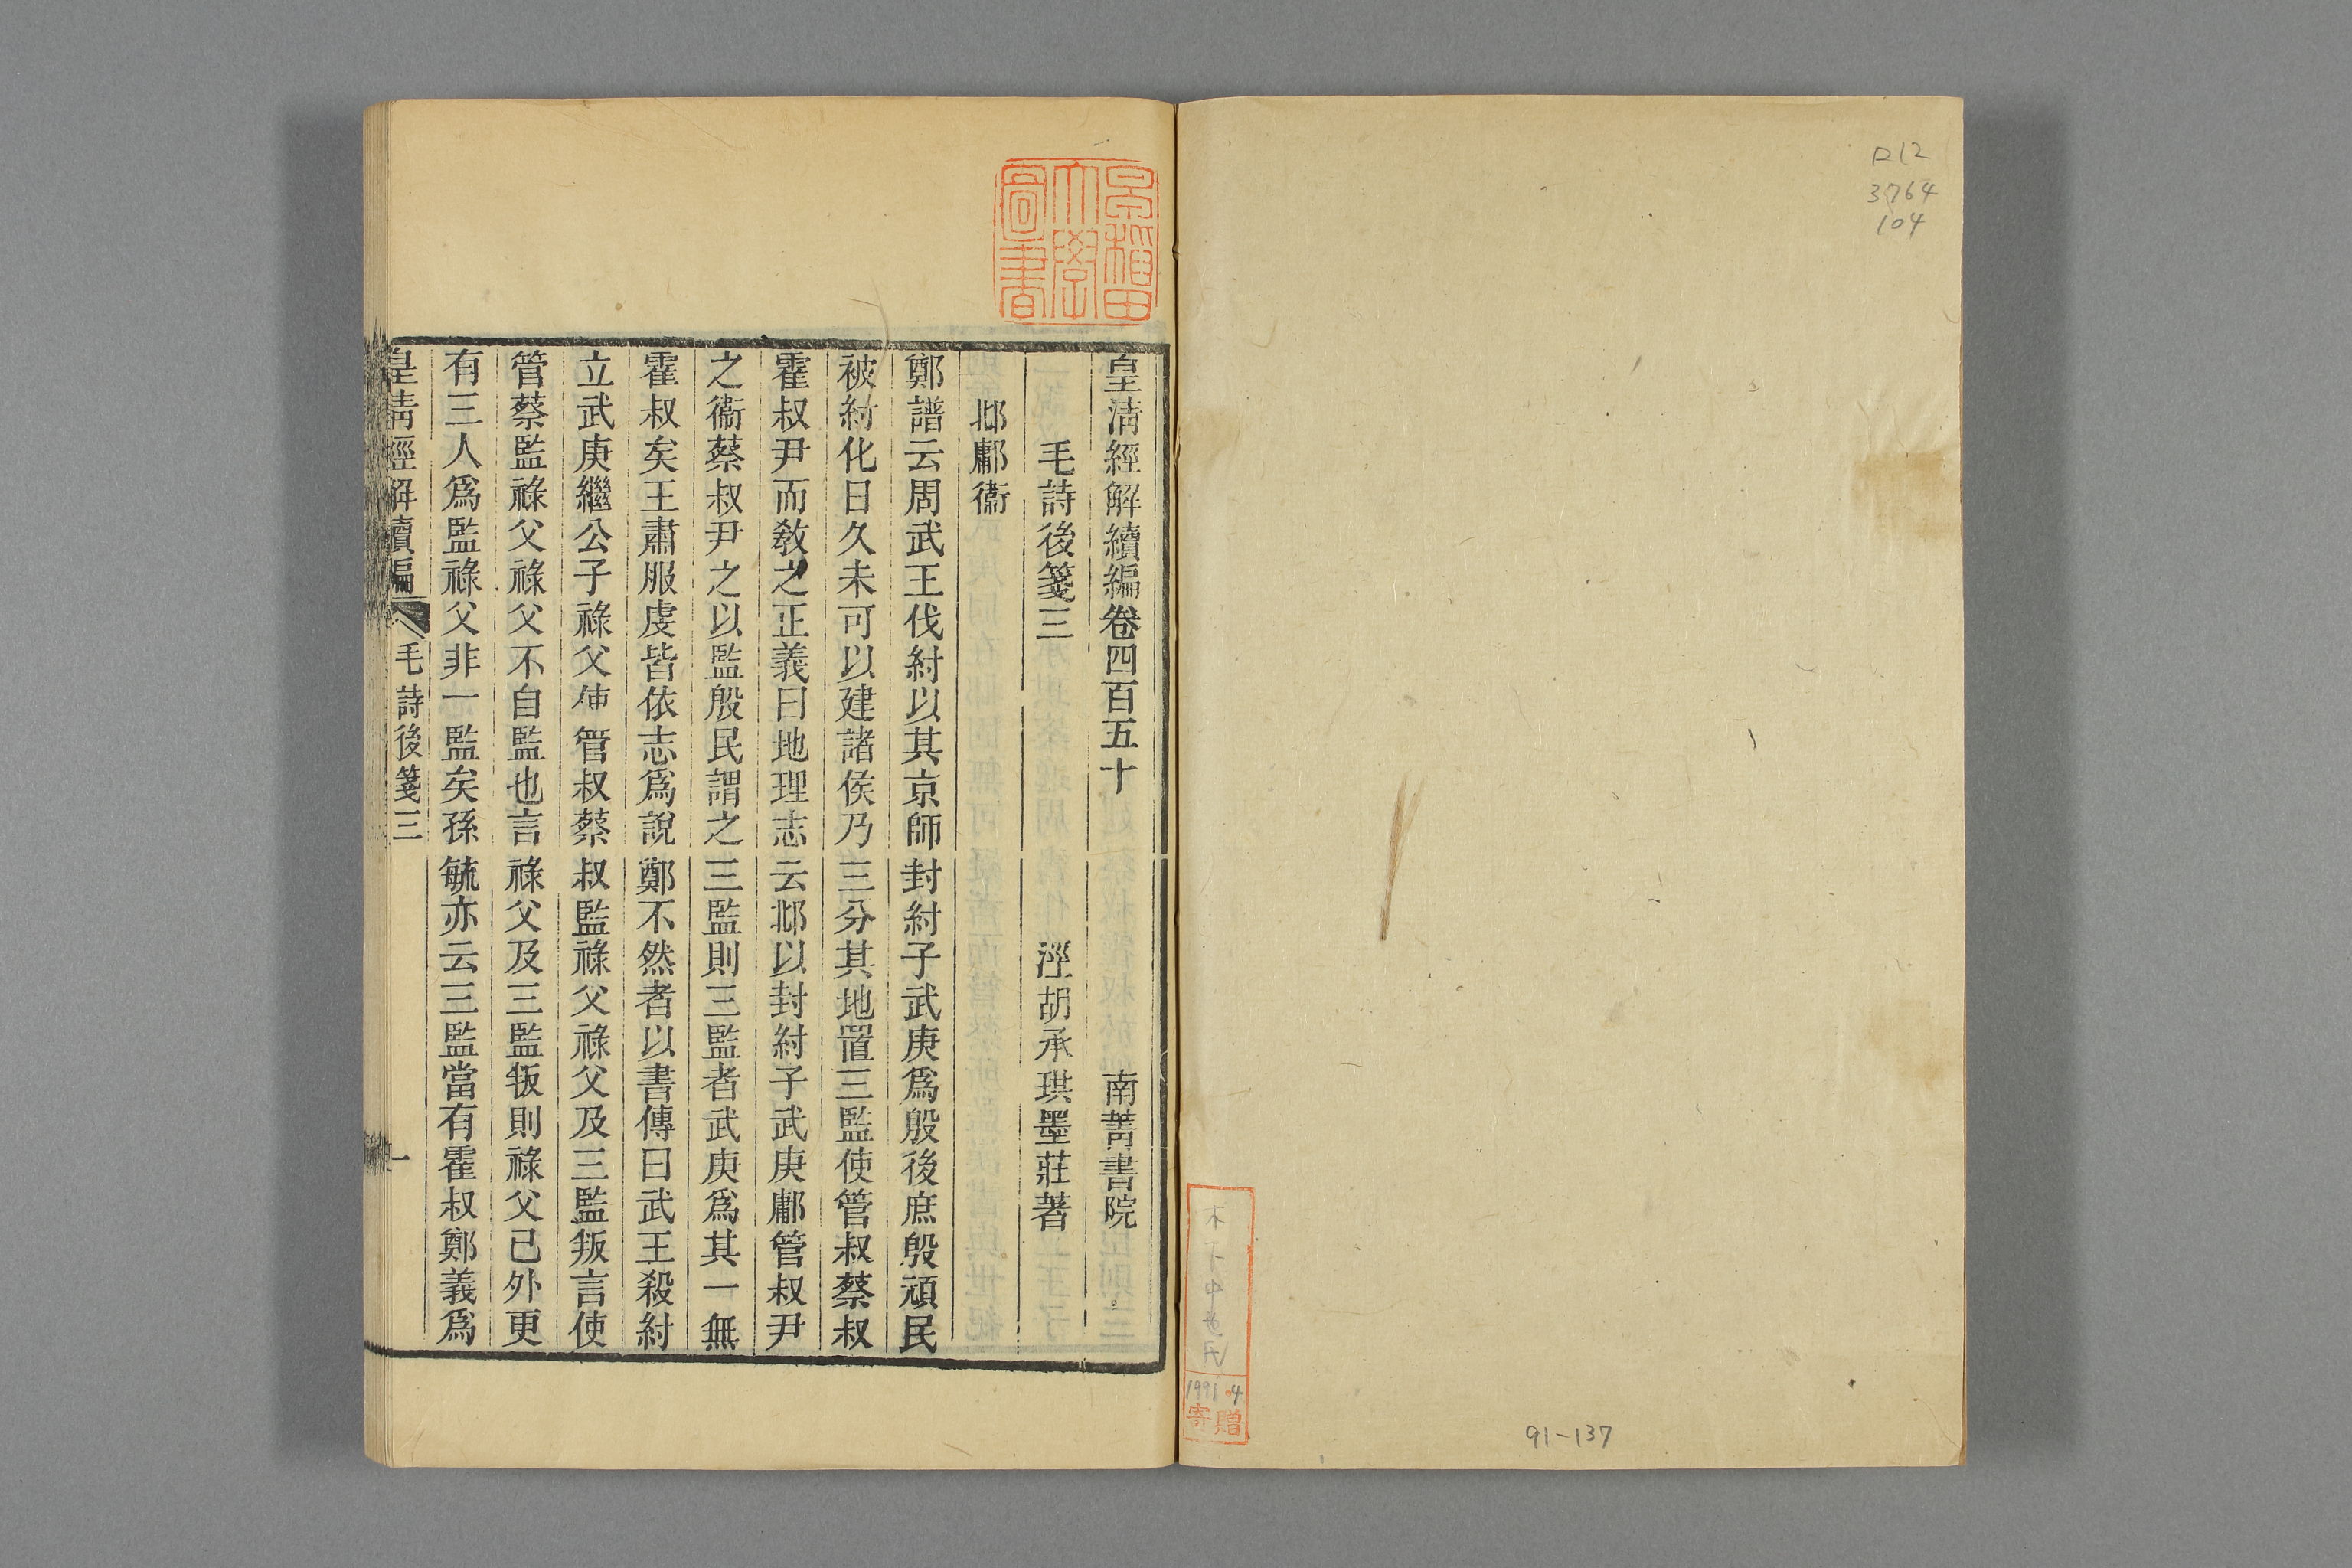 ロ12
3764
104
1991.4
寄贈
91-137
早稲田大學圖書
皇清經解續編卷四百五十 南菁書院
毛詩後箋三 涇胡承珙墨莊著
邶鄘衞
鄭譜云周武王伐紂以其京師封紂子武庚爲殷後庶殷頑民
被紂化日久未可以建諸侯乃三分其地置三監使管叔蔡叔
霍叔尹而敎之正義曰地理志云邶以封紂子武庚鄘管叔尹
之衞蔡叔尹之以監殷民謂之三監則三監者武庚爲其一無
霍叔矣王肅服虔皆依志爲說鄭不然者以書傳曰武王殺紂
立武庚繼公子祿父使管叔蔡叔監祿父祿父及三監叛言使
管蔡監祿父祿父不自監也言祿父及三監叛則祿父已外更
有三人爲監祿父非一監矣孫毓亦云三監當有霍叔鄭義爲
皇清經解續編 毛詩後箋三 一